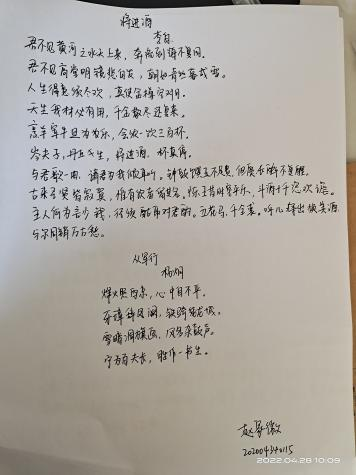 将进酒
李白
君不见黄河之水天上来，奔流到海不复回。
君不见高堂明镜悲白发，朝如青丝暮成雪。
人生得意须尽欢，莫使金樽空对月。
天生我材必有用，千金散尽还复来。
烹羊宰牛且为乐，会须一饮三百杯。
岑夫子，丹丘生，将进酒，杯莫停。
与君歌一曲，请君为我倾耳听。钟鼓馔玉不足贵，但愿长醉不复醒。
古来圣贤皆寂寞，惟有饮者留其名。陈王昔时宴平乐，斗酒十千恣欢谑。
主人何为言少钱，径须沽取对君酌。五花马，千金裘，呼儿将出换美酒，
与尔同销万古愁。
从军行
杨炯
烽火照西京，心中自不平。
牙璋辞凤阙，铁骑绕龙城。
雪暗凋旗画，风多杂鼓声。
宁为百夫长，胜作一书生。
赵
2022.04.28 10:09